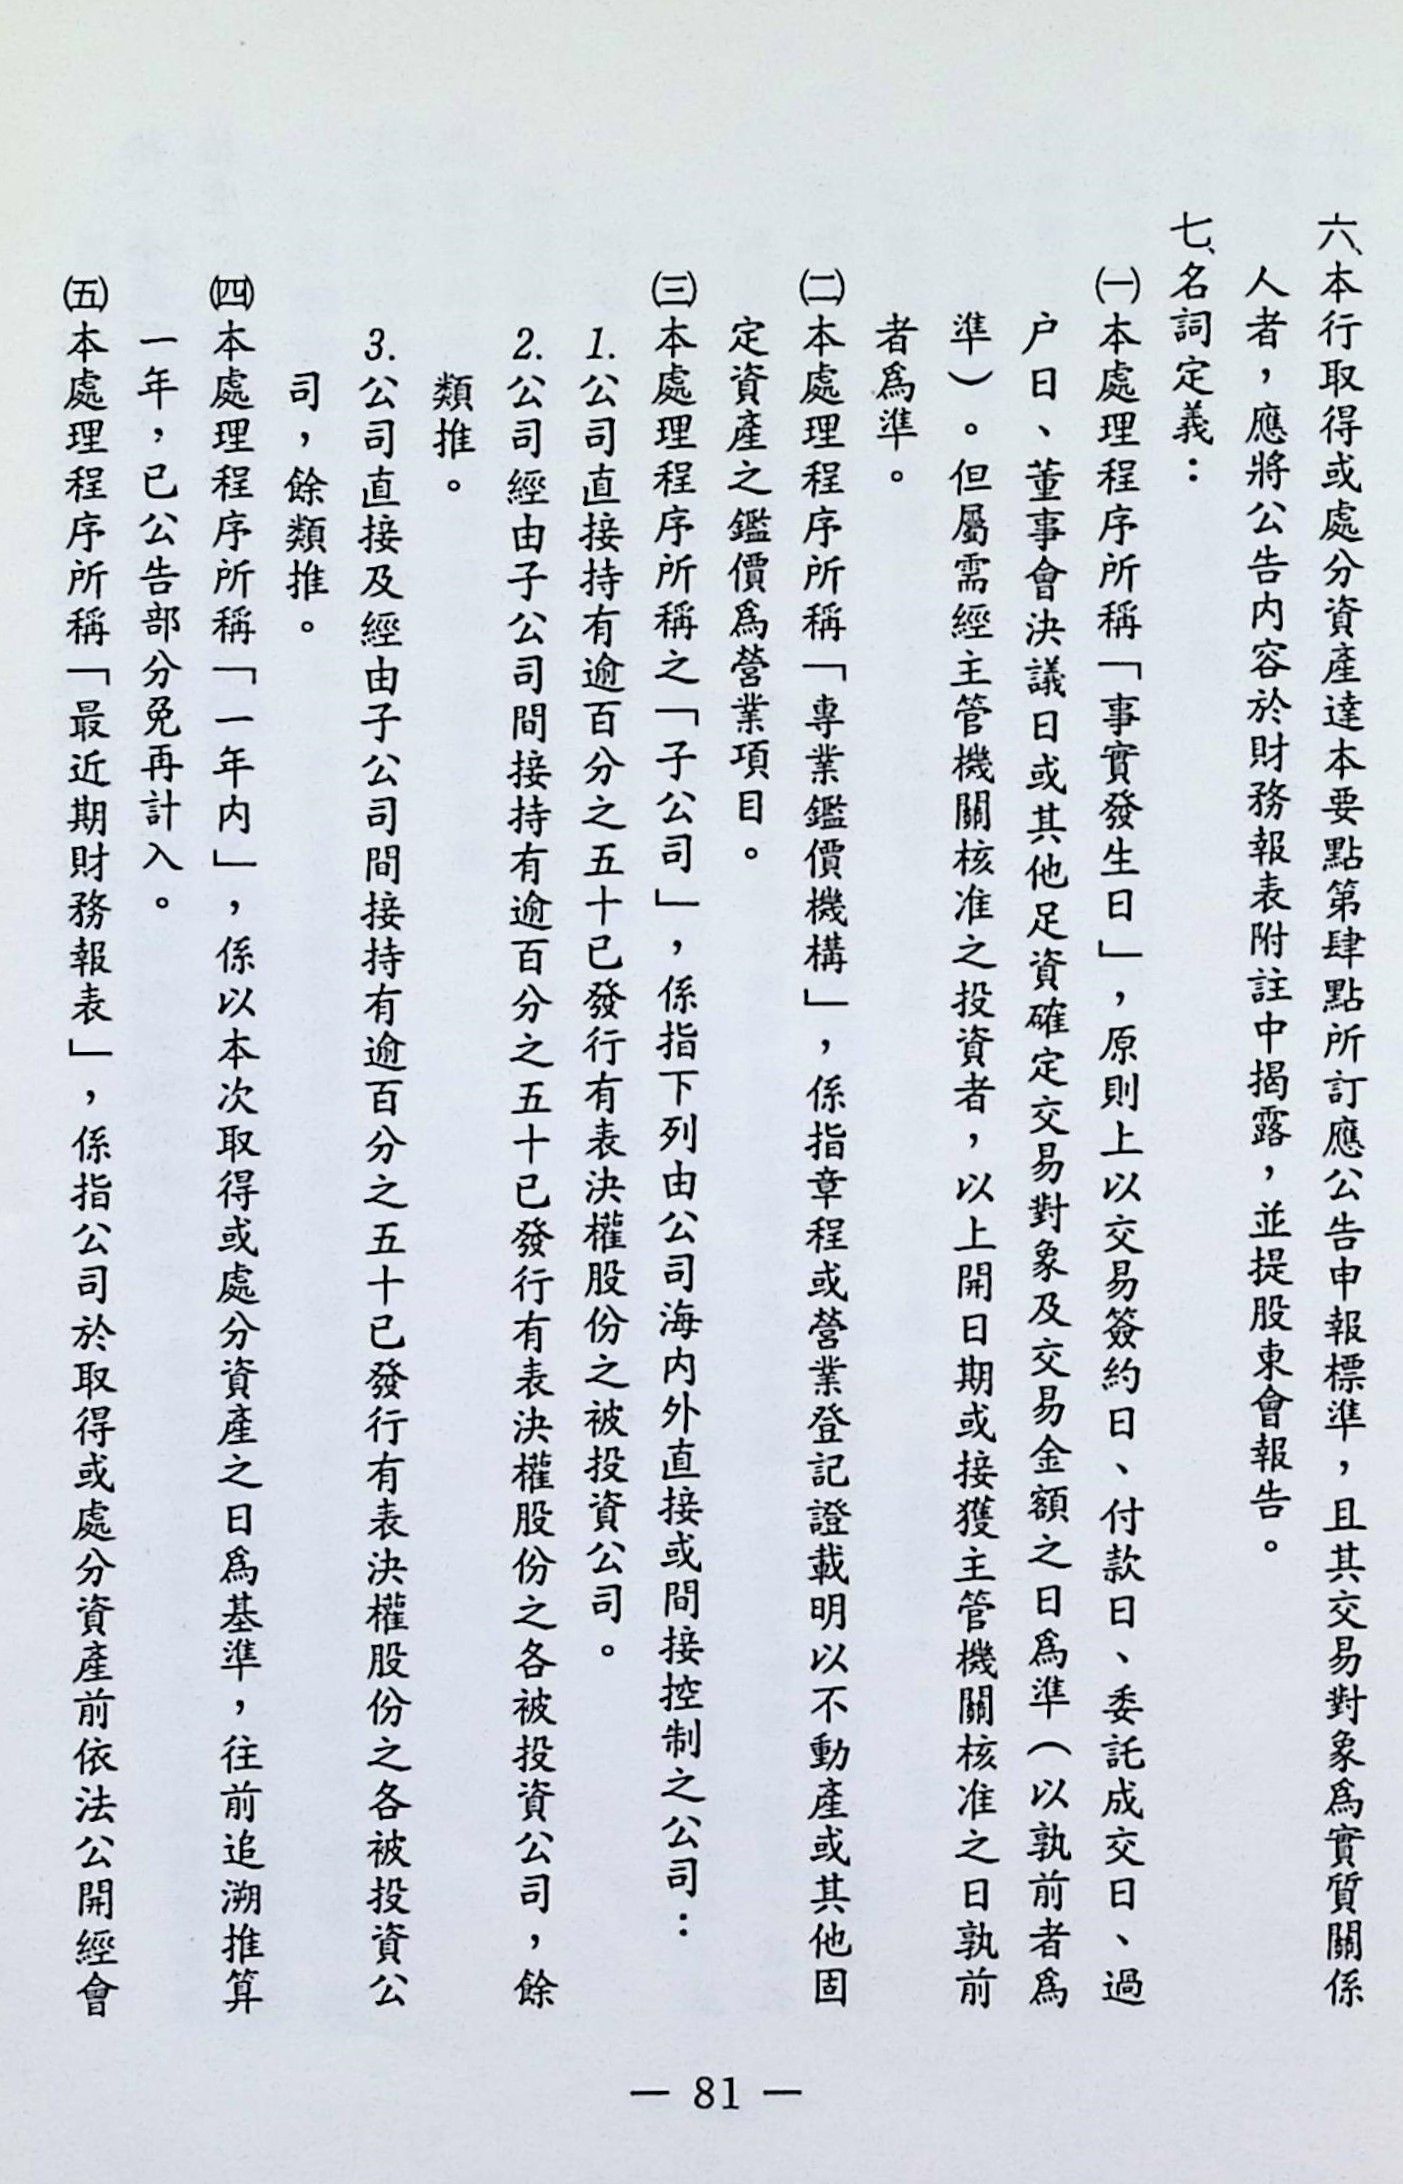 六、本行取得或處分資產達本要點第肆點所訂應公告申報標準，且其交易對象爲實質關係
人者，應將公告内容於財務報表附註中揭露，並提股東會報告。
七、名詞定義：
㈠本處理程序所稱「事實發生日」，原則上以交易簽約日、付款日、委託成交日、過
户日、董事會決議日或其他足資確定交易對象及交易金額之日爲準（以孰前者爲
準）。但屬需經主管機關核准之投資者，以上開日期或接獲主管機關核准之日孰前
者爲準。
㈡本處理程序所稱「專業鑑價機構」，係指章程或營業登記證載明以不動產或其他固
定資產之鑑價爲營業項目。
㈢本處理程序所稱之「子公司」，係指下列由公司海内外直接或間接控制之公司：
1.公司直接持有逾百分之五十已發行有表決權股份之被投資公司。
2.公司經由子公司間接持有逾百分之五十已發行有表決權股份之各被投資公司，餘
類推。
3.公司直接及經由子公司間接持有逾百分之五十已發行有表決權股份之各被投資公
司，餘類推。
㈣本處理程序所稱「一年内」，係以本次取得或處分資產之日爲基準，往前追溯推算
一年，已公告部分免再計入。
㈤本處理程序所稱「最近期財務報表」，係指公司於取得或處分資產前依法公開經會
— 81 —